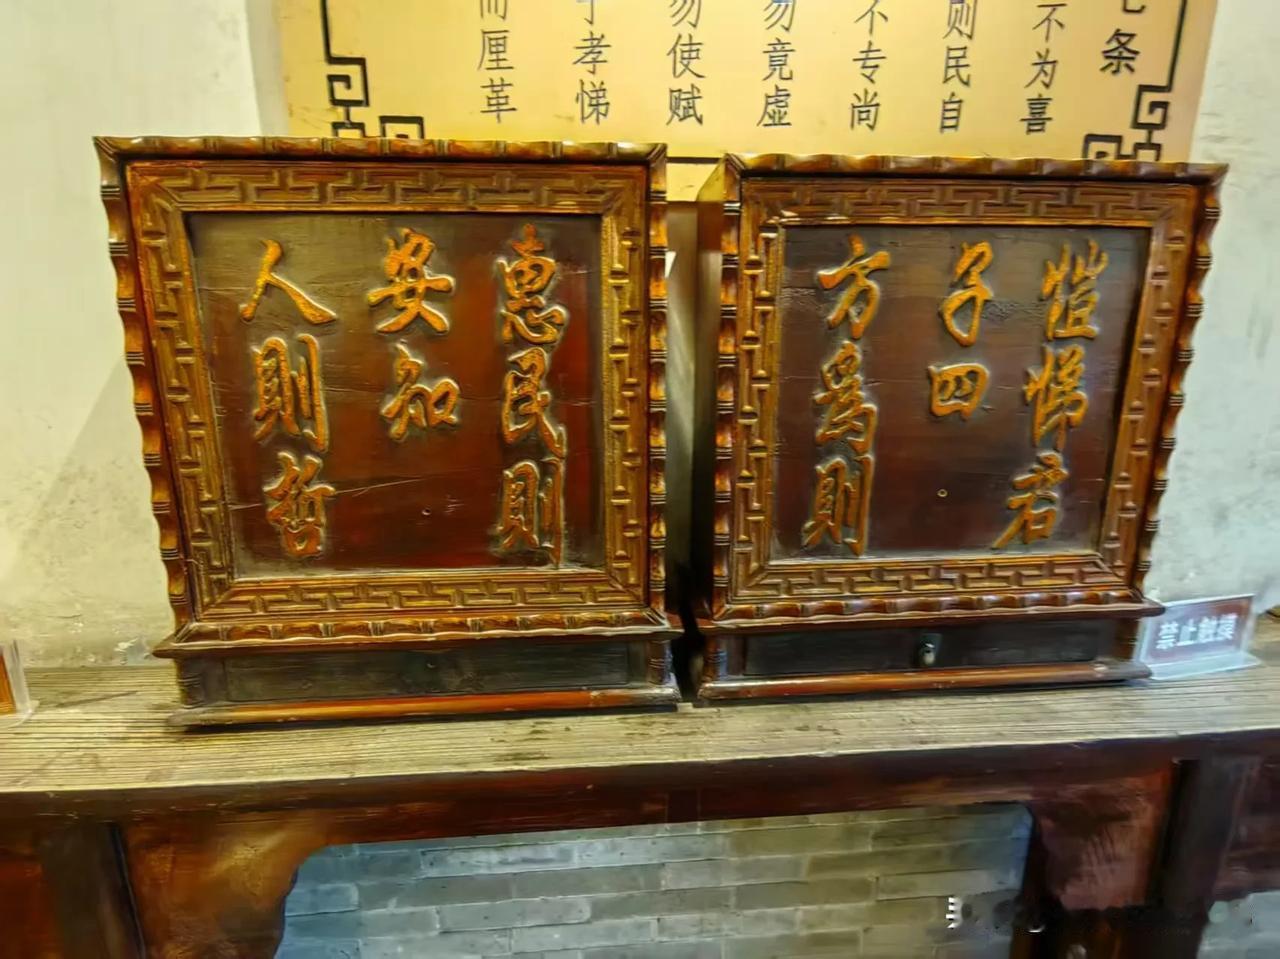 七条
不为喜
则民自
不专尚
勿竟虚
勿使赋
于孝悌
而厘革
愷悌君
子四
方為則
惠民則
安知
人則哲
禁止触摸